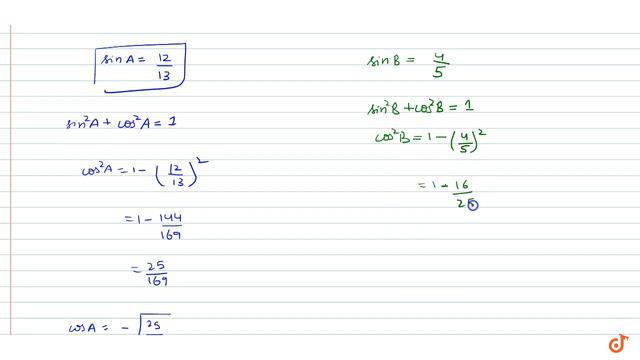 sinA = 12/13
sin²A + cos²A = 1
cos²A = 1 - (12/13)²
= 1 - 144/169
= 25/169
cosA = - √25
sinB = 4/5
sin²B + cos²B = 1
cos²B = 1 - (4/5)²
= 1 - 16/25
doubtnut